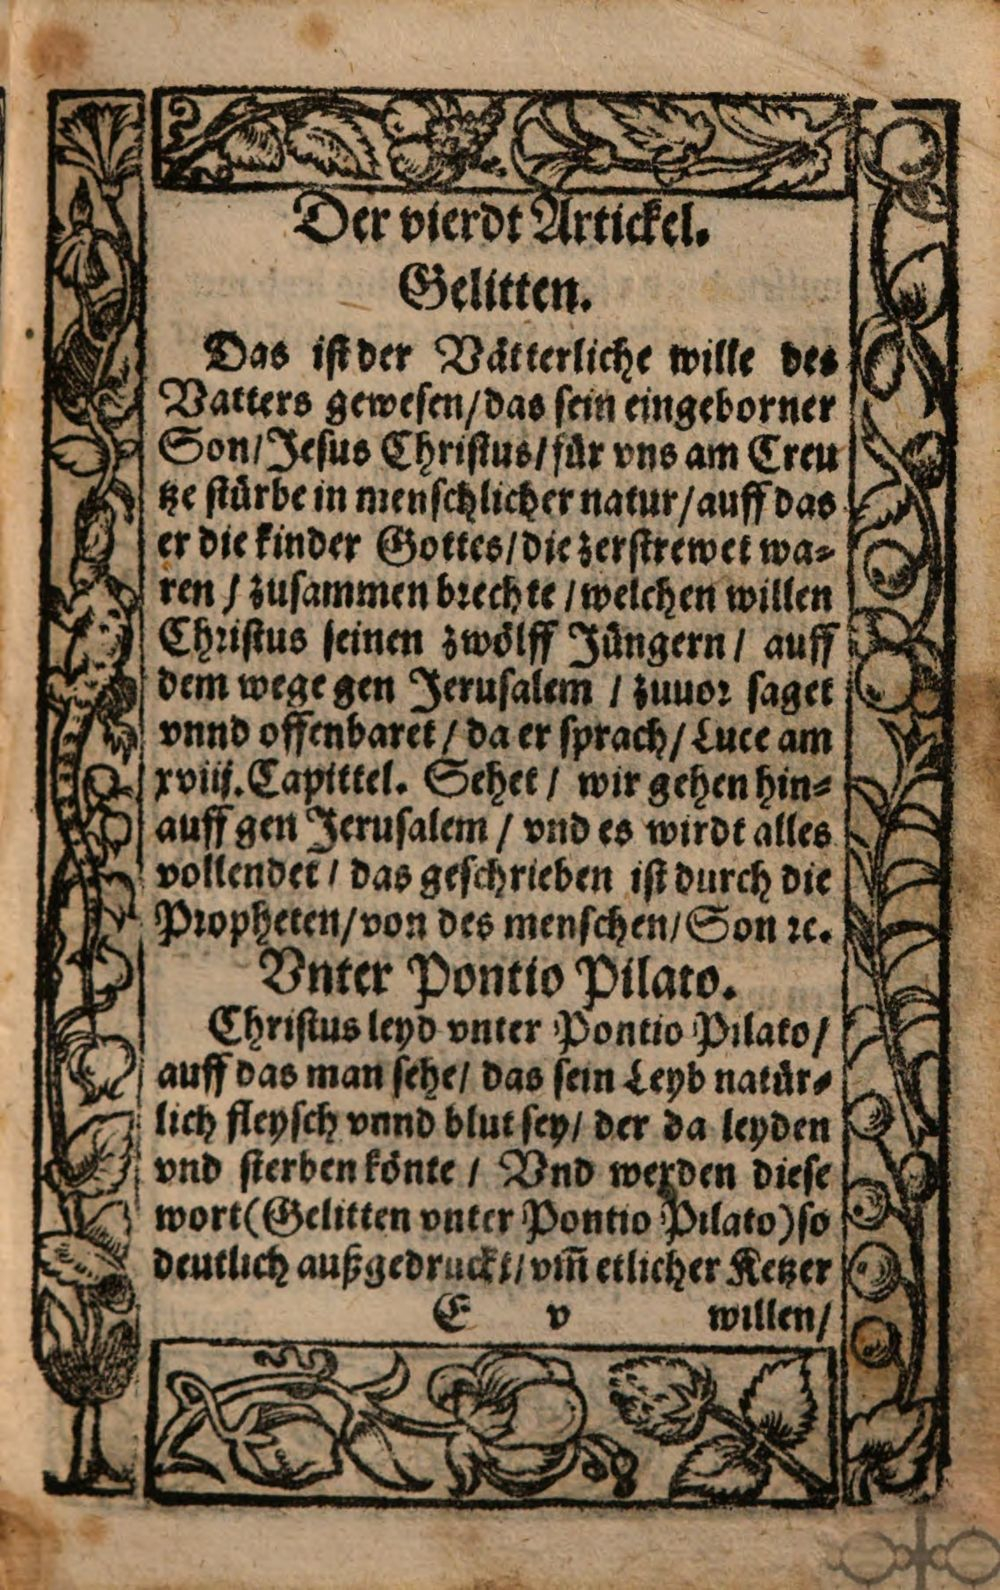 Der vierdt Artickel.
Gelitten.
Das ist der Vätterliche wille des
Vatters gewesen/das sein eingeborner
Son/Jesus Christus/für vns am Creu
tze stürbe in menschlicher natur/auff das
er die kinder Gottes/die zerstrewet wa⸗
ren / zusammen brechte / welchen willen
Christus seinen zwölff Jüngern / auff
dem wege gen Jerusalem / zuuor saget
vnnd offenbaret / da er sprach / Luce am
xviij. Capittel. Sehet / wir gehen hin⸗
auff gen Jerusalem / vnd es wirdt alles
vollendet / das geschrieben ist durch die
Propheten/von des menschen/Son ꝛc.
Vnter Pontio Pilato.
Christus leyd vnter Pontio Pilato/
auff das man sehe/ das sein Leyb natür⸗
lich fleysch vnnd blut sey/ der da leyden
vnd sterben könte / Vnd werden diese
wort(Gelitten vnter Pontio Pilato)so
deutlich außgedruckt/vm̃ etlicher Ketzer
E v willen/